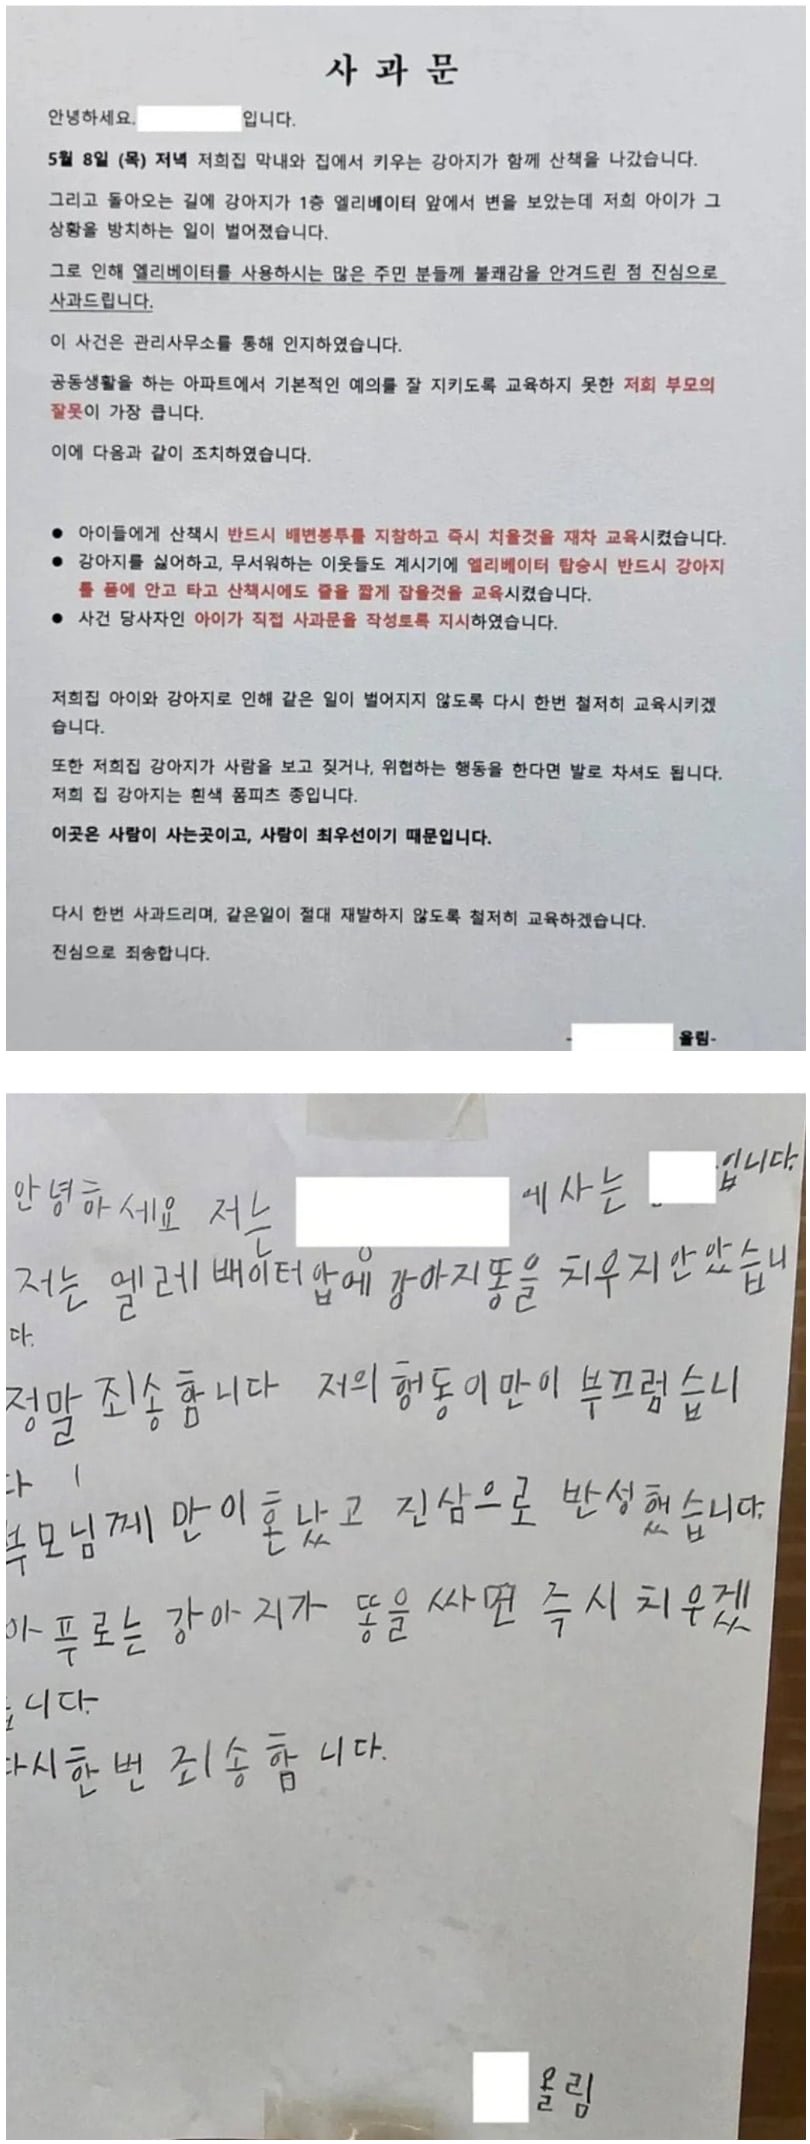 사 과 문
안녕하세요. 입니다.
5월 8일 (목) 저녁 저희집 막내와 집에서 키우는 강아지가 함께 산책을 나갔습니다.
그리고 돌아오는 길에 강아지가 1층 엘리베이터 앞에서 변을 보았는데 저희 아이가 그
상황을 방치하는 일이 벌어졌습니다.
그로 인해 엘리베이터를 사용하시는 많은 주민 분들께 불쾌감을 안겨드린 점 진심으로
사과드립니다.
이 사건은 관리사무소를 통해 인지하였습니다.
공동생활을 하는 아파트에서 기본적인 예의를 잘 지키도록 교육하지 못한 저희 부모의
잘못이 가장 큽니다.
이에 다음과 같이 조치하였습니다.
● 아이들에게 산책시 반드시 배변봉투를 지참하고 즉시 치울것을 재차 교육시켰습니다.
● 강아지를 싫어하고, 무서워하는 이웃들도 계시기에 엘리베이터 탑승시 반드시 강아지
를 품에 안고 타고 산책시에도 줄을 짧게 잡을것을 교육시켰습니다.
● 사건 당사자인 아이가 직접 사과문을 작성토록 지시하였습니다.
저희집 아이와 강아지로 인해 같은 일이 벌어지지 않도록 다시 한번 철저히 교육시키겠
습니다.
또한 저희집 강아지가 사람을 보고 짖거나, 위협하는 행동을 한다면 발로 차셔도 됩니다.
저희 집 강아지는 흰색 폼피츠 종입니다.
이곳은 사람이 사는곳이고, 사람이 최우선이기 때문입니다.
다시 한번 사과드리며, 같은일이 절대 재발하지 않도록 철저히 교육하겠습니다.
진심으로 죄송합니다.
- 올림-
안녕하세요 저는 에 사는 입니다.
저는 엘레배이터 앞에 강아지똥을 치우지안았습니
다.
정말 죄송합니다 저의 행동이만이 부끄럽습니
다
부모님께 만이혼났고 진심으로 반성했습니다.
아푸로는 강아지가 똥을 싸면 즉시 치우겠
습니다.
다시한번 죄송합니다.
올림